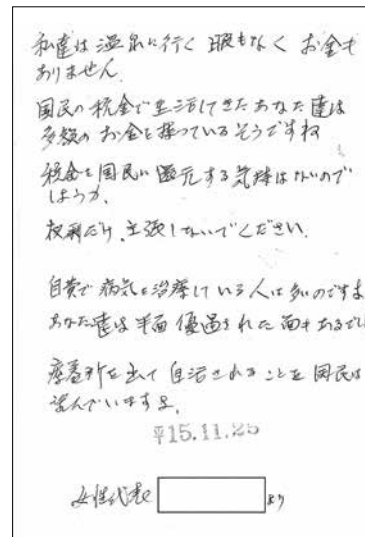 私達は温泉に行く暇もなく お金も
ありません.
国民の税金で生活してきたあなた達は
多額の お金を持っているそうですね
税金を国民に還元する気持はないので
しょうか.
权利だけ.主張しないでください.
自費で病気を治療している人は多いのですよ
あなた達は半面 優遇された面もあるでし
療養所を出て自活されることを国民は
望んでいますよ.
平15.11.25
女性代表 より